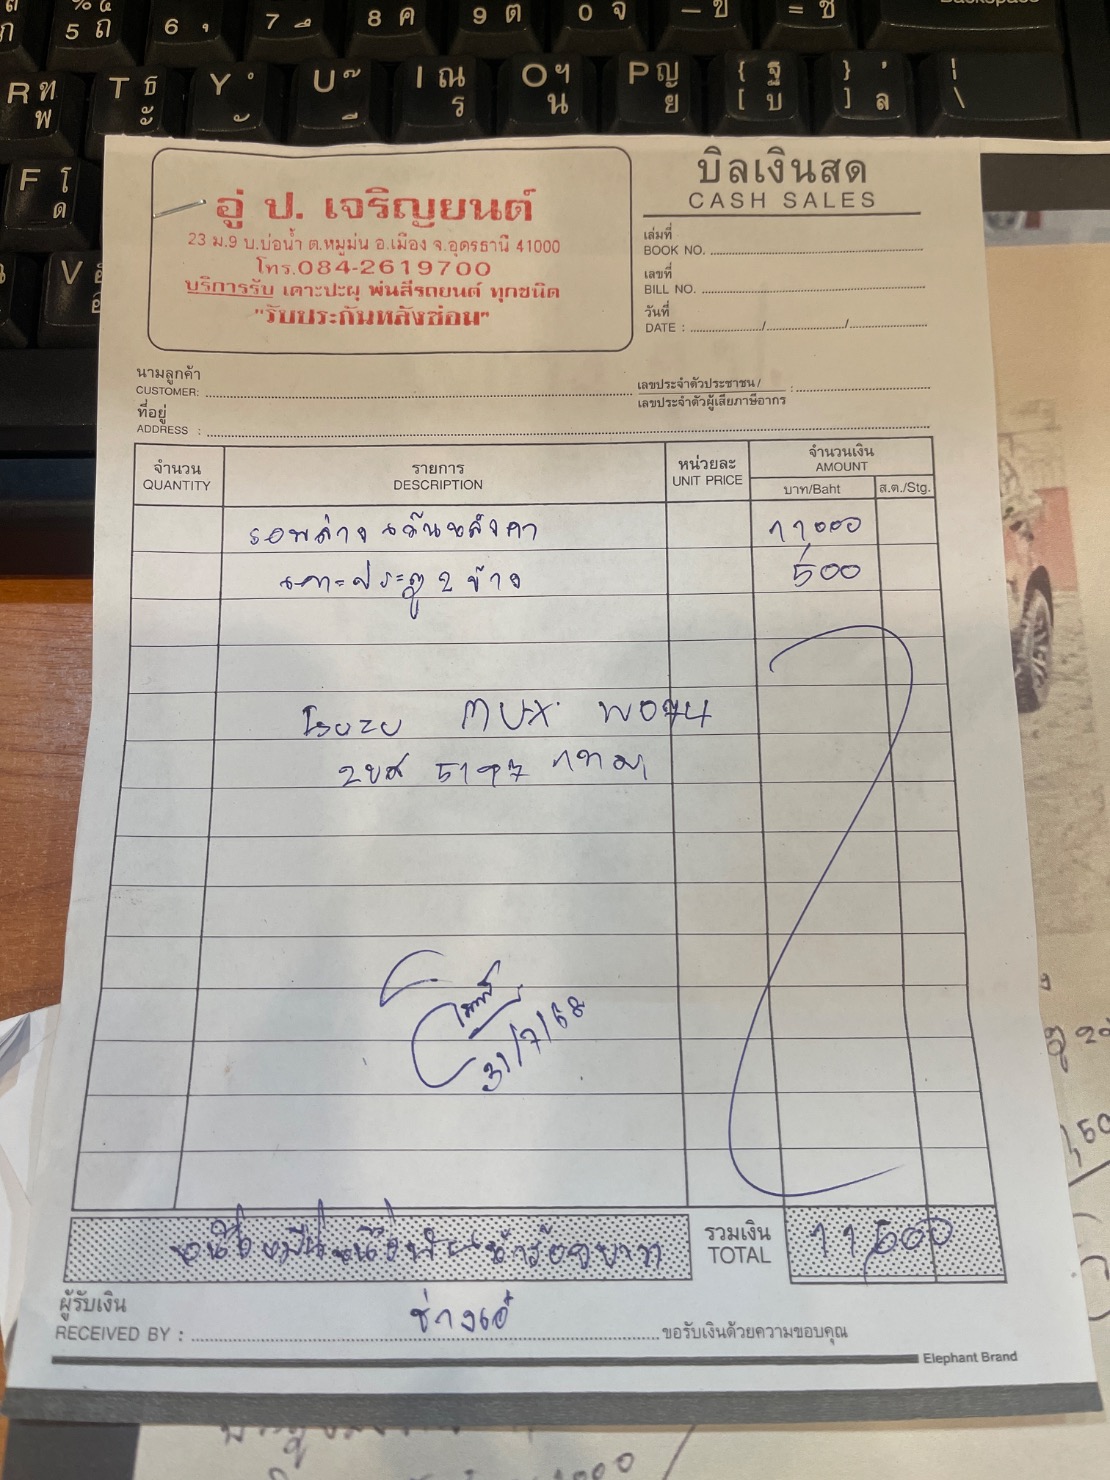 บิลเงินสด
CASH SALES
อู่ ป. เจริญยนต์
23 ม.9 บ.บ่อน้ำ ต.หมูม่น อ.เมือง จ.อุดรธานี 41000
โทร.084-2619700
บริการรับ เคาะปะผุ พ่นสีรถยนต์ ทุกชนิด
"รับประกันหลังซ่อม"
เล่มที่
BOOK NO.
เลขที่
BILL NO.
วันที่
DATE : / /
นามลูกค้า
CUSTOMER:
เลขประจำตัวประชาชน/ :
เลขประจำตัวผู้เสียภาษีอากร
ที่อยู่
ADDRESS :
จำนวน
QUANTITY
รายการ
DESCRIPTION
หน่วยละ
UNIT PRICE
จำนวนเงิน
AMOUNT
บาท/Baht
ส.ต./Stg.
รอบคัน เว้นหลังคา 11,000
เคาะประตู 2 ข้าง 500
Isuzu MUX
2ขศ 5197 กทม
31/7/68
หนึ่งหมื่นหนึ่งพันห้าร้อยบาท
รวมเงิน
TOTAL
11,500
ผู้รับเงิน
RECEIVED BY :
ช่างเอ๋
ขอรับเงินด้วยความขอบคุณ
Elephant Brand